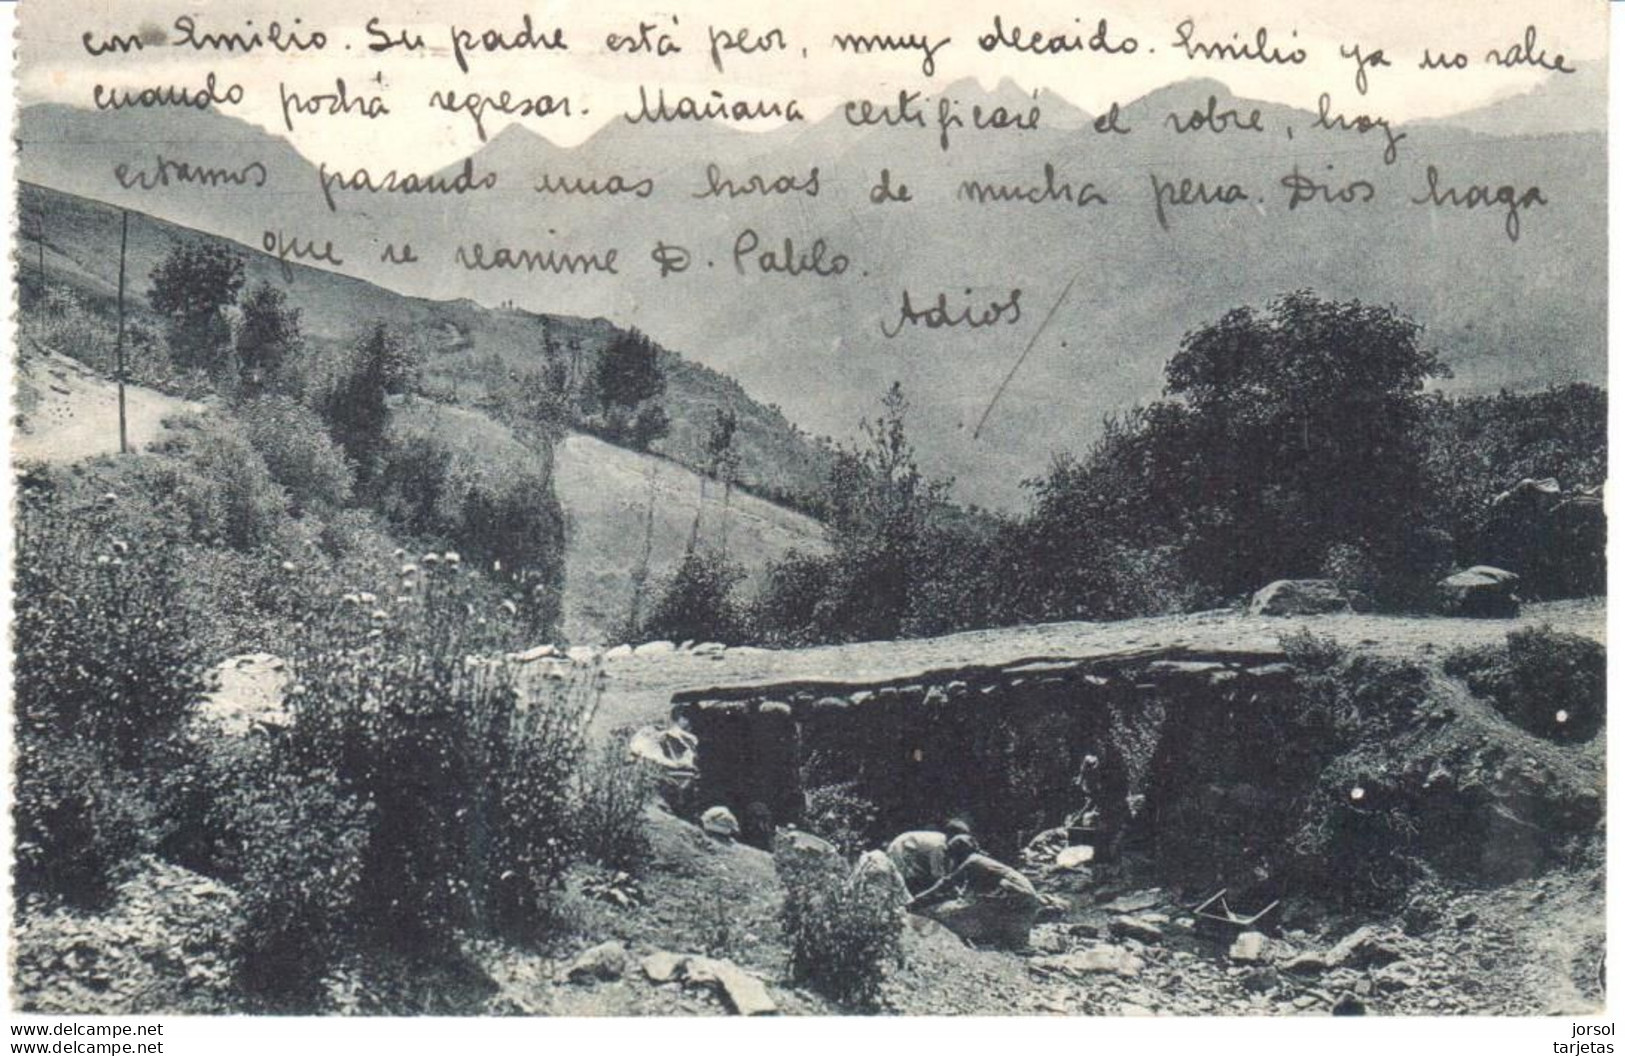 con Emilio. Su padre está peor, muy decaido. Emilio ya no sabe
cuando podrá regresar. Mañana certificaré el sobre, hoy
estamos pasando unas horas de mucha pena. Dios haga
que se reanime D. Pablo.
Adios
www.delcampe.net
www.delcampe.net
jorsol
tarjetas